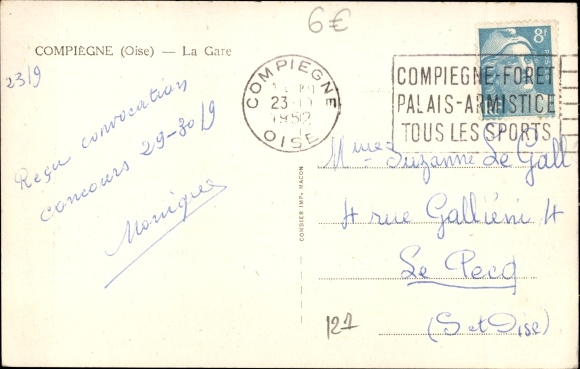 6€
COMPIÈGNE (Oise) — La Gare
23/9
Reçu convocation
concours 29-30/9
Monique
COMPIEGNE
23-
1952
OISE
8F
COMPIEGNE-FORET
PALAIS-ARMISTICE
TOUS LES SPORTS
COMBIER IMP. MACON
Suzanne Le Gall
4 rue Galliéni 4
Le Pecq
(S et Oise)
127